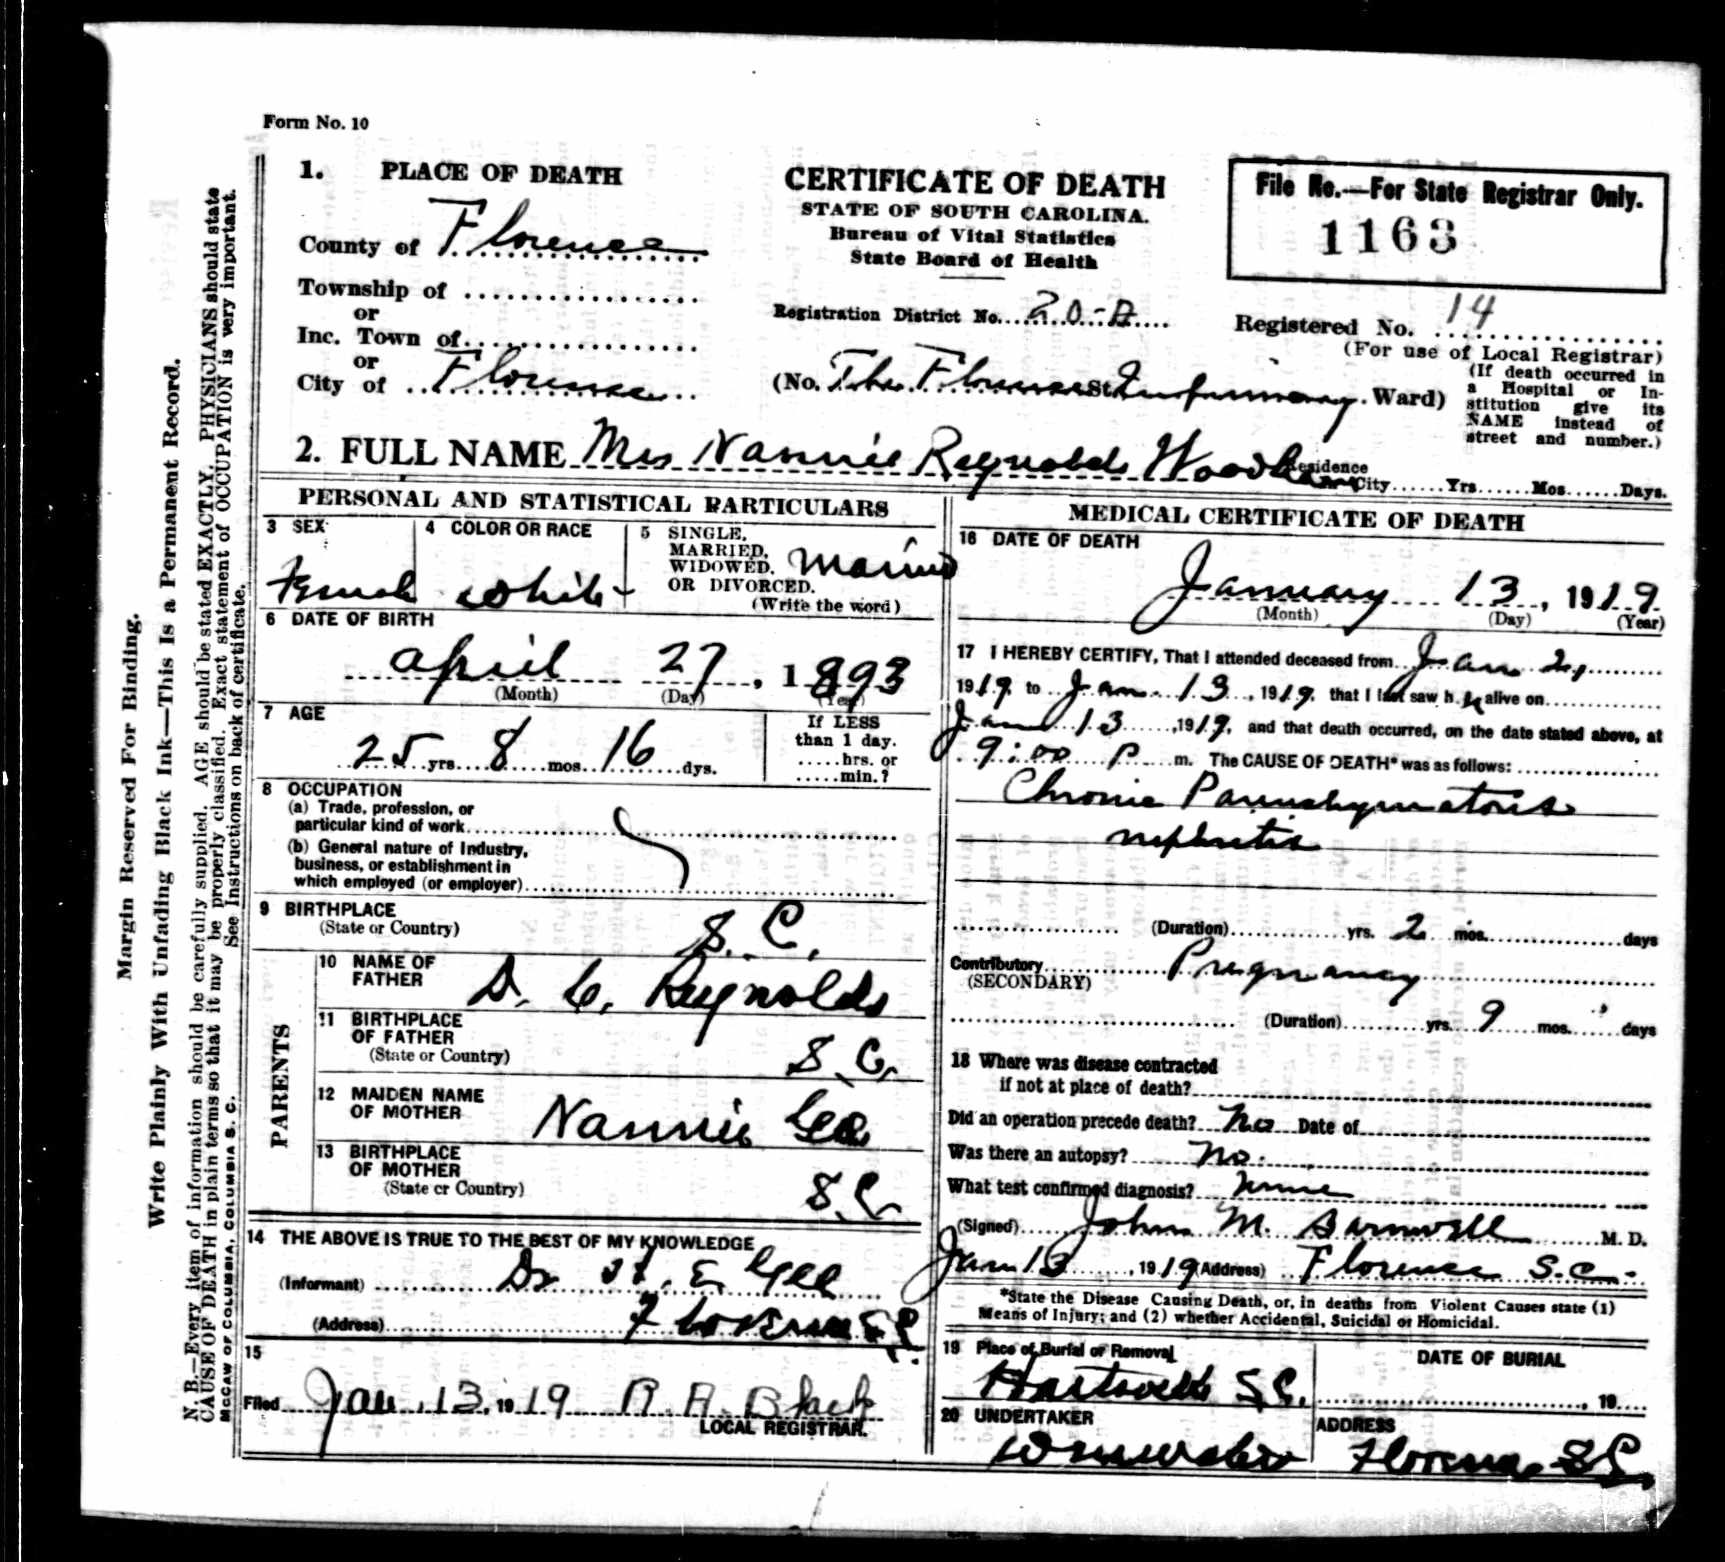 Form No. 10
1. PLACE OF DEATH
County of Florence
Township of
or
Inc. Town of
or
City of Florence
CERTIFICATE OF DEATH
STATE OF SOUTH CAROLINA.
Bureau of Vital Statistics
State Board of Health
Registration District No. 20-A
(No. The Florence St. Infirmary Ward)
File No.—For State Registrar Only.
1163
Registered No. 14
(For use of Local Registrar)
(If death occurred in
a Hospital or In-
stitution give its
NAME instead of
street and number.)
2. FULL NAME Mrs Nannie Reynolds
Residence
City Yrs Mos Days.
PERSONAL AND STATISTICAL PARTICULARS
3 SEX
Female
4 COLOR OR RACE
White
5 SINGLE,
MARRIED,
WIDOWED,
OR DIVORCED.
(Write the word)
Married
6 DATE OF BIRTH
April 27, 1893
(Month) (Day) (Year)
7 AGE
25 yrs. 8 mos. 16 dys.
If LESS
than 1 day.
hrs. or
min.?
8 OCCUPATION
(a) Trade, profession, or
particular kind of work
(b) General nature of Industry,
business, or establishment in
which employed (or employer)
9 BIRTHPLACE
(State or Country)
S. C.
PARENTS
10 NAME OF
FATHER
D. C. Reynolds
11 BIRTHPLACE
OF FATHER
(State or Country)
S. C.
12 MAIDEN NAME
OF MOTHER
Nannie Gee
13 BIRTHPLACE
OF MOTHER
(State or Country)
S. C.
14 THE ABOVE IS TRUE TO THE BEST OF MY KNOWLEDGE
(Informant) Dr E. Gee
(Address) Florence S.C.
15
Filed Jan. 13, 1919 Black
LOCAL REGISTRAR.
MEDICAL CERTIFICATE OF DEATH
16 DATE OF DEATH
January 13, 1919
(Month) (Day) (Year)
17 I HEREBY CERTIFY, That I attended deceased from Jan 2,
1919, to Jan. 13, 1919, that I last saw h alive on
Jan 13, 1919, and that death occurred, on the date stated above, at
9:00 P m. The CAUSE OF DEATH* was as follows:
Chronic Parenchymatous
nephritis
(Duration) yrs. 2 mos. days
Contributory Pregnancy
(SECONDARY)
(Duration) yrs. 9 mos. days
18 Where was disease contracted
if not at place of death?
Did an operation precede death? No Date of
Was there an autopsy? No.
What test confirmed diagnosis? None
(Signed) John M. Barnwell M. D.
Jan 13, 1919 (Address) Florence S.C.
*State the Disease Causing Death, or, in deaths from Violent Causes state (1)
Means of Injury; and (2) whether Accidental, Suicidal or Homicidal.
19 Place of Burial or Removal
Hartsville S.C.
DATE OF BURIAL
, 19
20 UNDERTAKER
ADDRESS
Florence S.C.
Margin Reserved For Binding.
Write Plainly With Unfading Black Ink—This Is a Permanent Record.
N. B.—Every item of information should be carefully supplied. AGE should be stated EXACTLY. PHYSICIANS should state
CAUSE OF DEATH in plain terms so that it may be properly classified. Exact statement of OCCUPATION is very important.
See Instructions on back of certificate.
MCCAW OF COLUMBIA, COLUMBIA S. C.